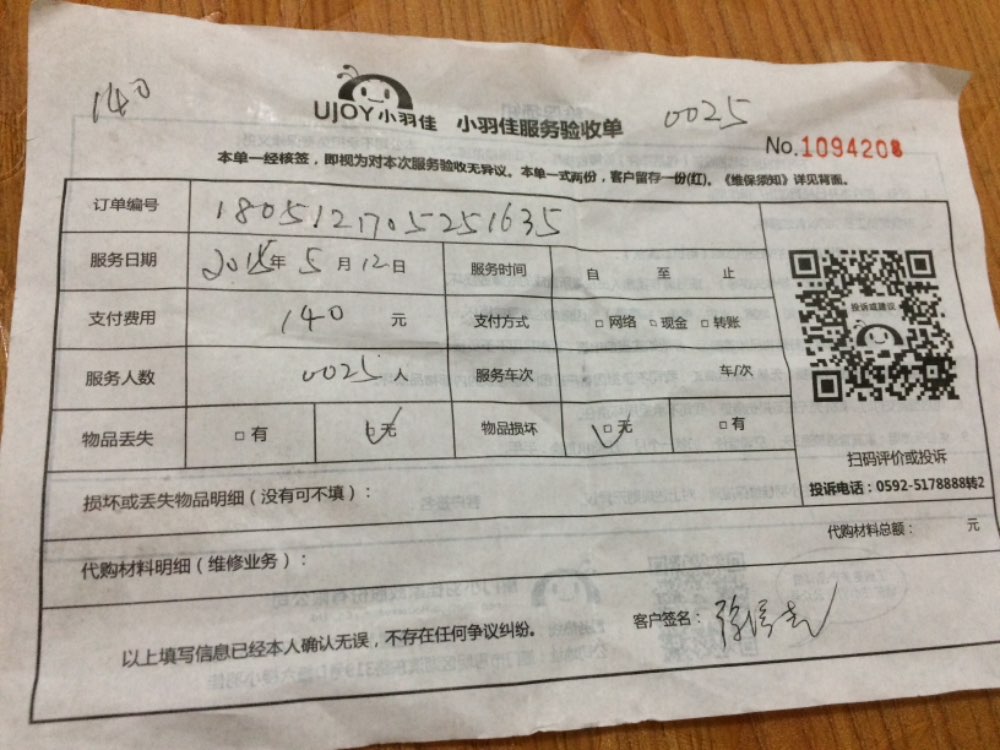 140
UJOY小羽佳 小羽佳服务验收单 0025
No.1094208
本单一经核签，即视为对本次服务验收无异议。本单一式两份，客户留存一份(红)。《维保须知》详见背面。
订单编号 1805121705251635
服务日期 2018年5月12日 服务时间 自 至 止
支付费用 140 元 支付方式 □网络 □现金 □转账
服务人数 0025人 服务车次 车/次
物品丢失 □有 □无 物品损坏 □无 □有
投诉或建议
扫码评价或投诉
投诉电话：0592-5178888转2
损坏或丢失物品明细（没有可不填）：
代购材料明细（维修业务）： 代购材料总额： 元
以上填写信息已经本人确认无误，不存在任何争议纠纷。 客户签名：